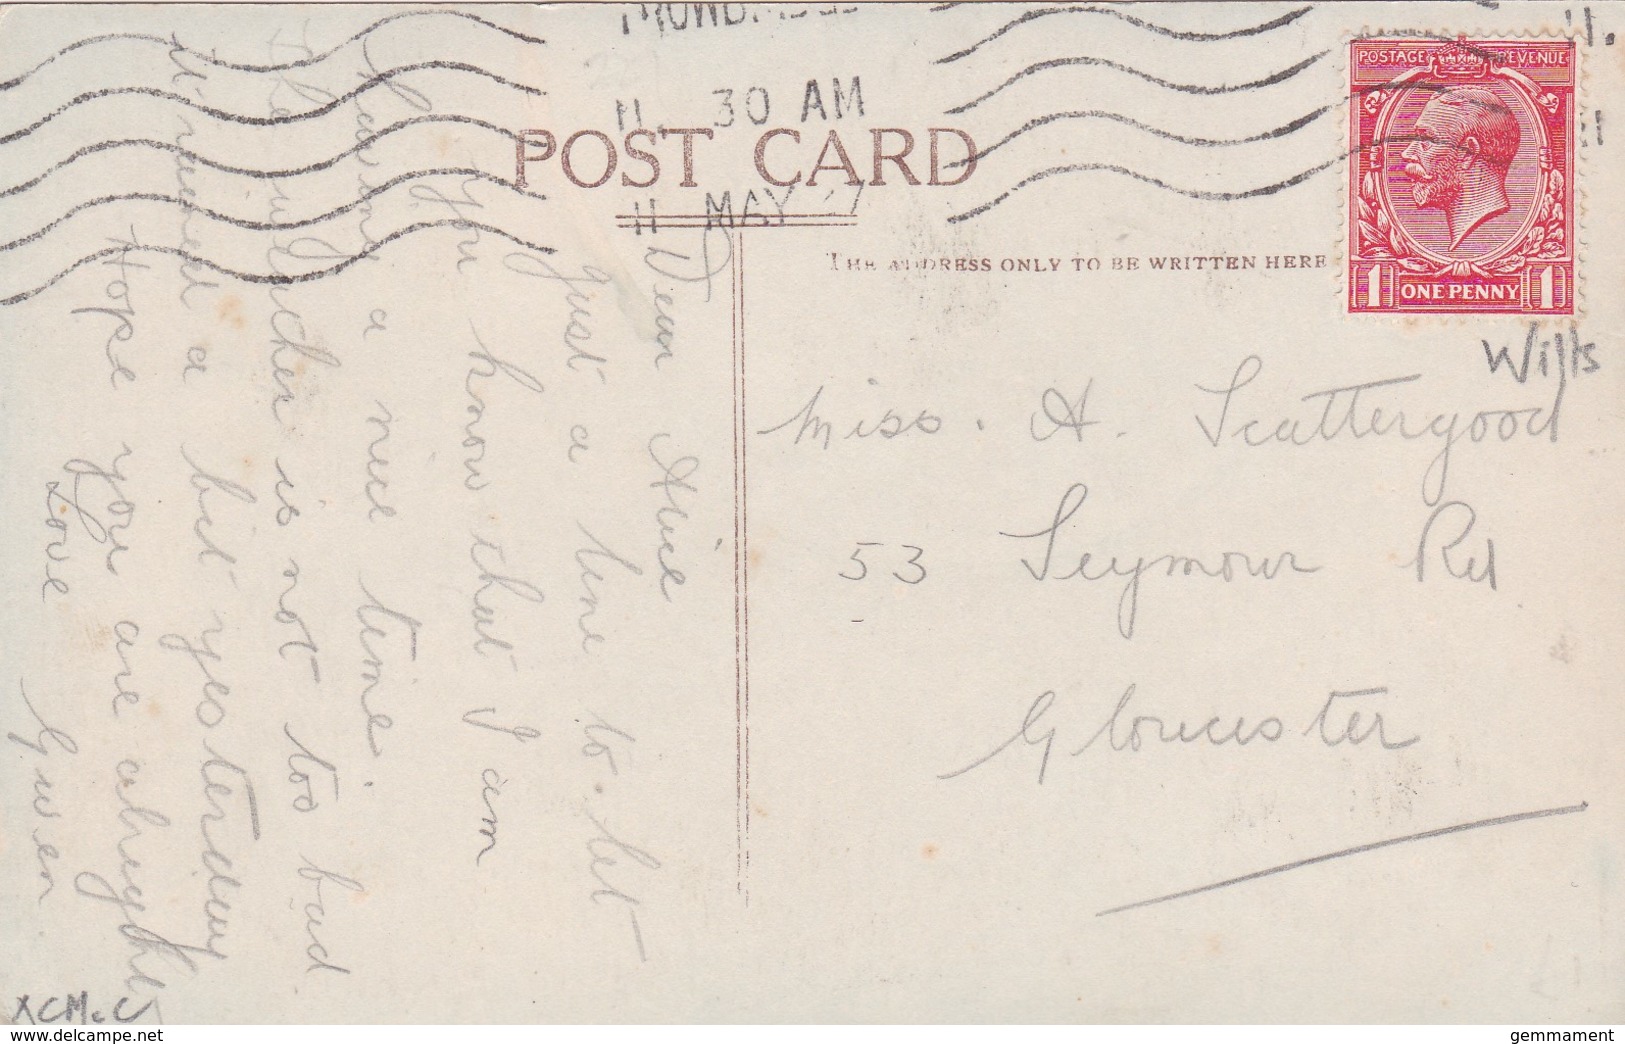 30 AM
11 MAY 27
POST CARD
POSTAGE REVENUE
1 ONE PENNY 1
THE ADDRESS ONLY TO BE WRITTEN HERE
Wilts
Miss. A. Scattergood
53 Seymour Rd
Gloucester
Dear Alice
Just a line to let
you know that I am
having a nice time.
The weather is not too bad
it rained a bit yesterday
Hope you are alright
Love Gwen
XCM.C
www.delcampe.net
gemmament